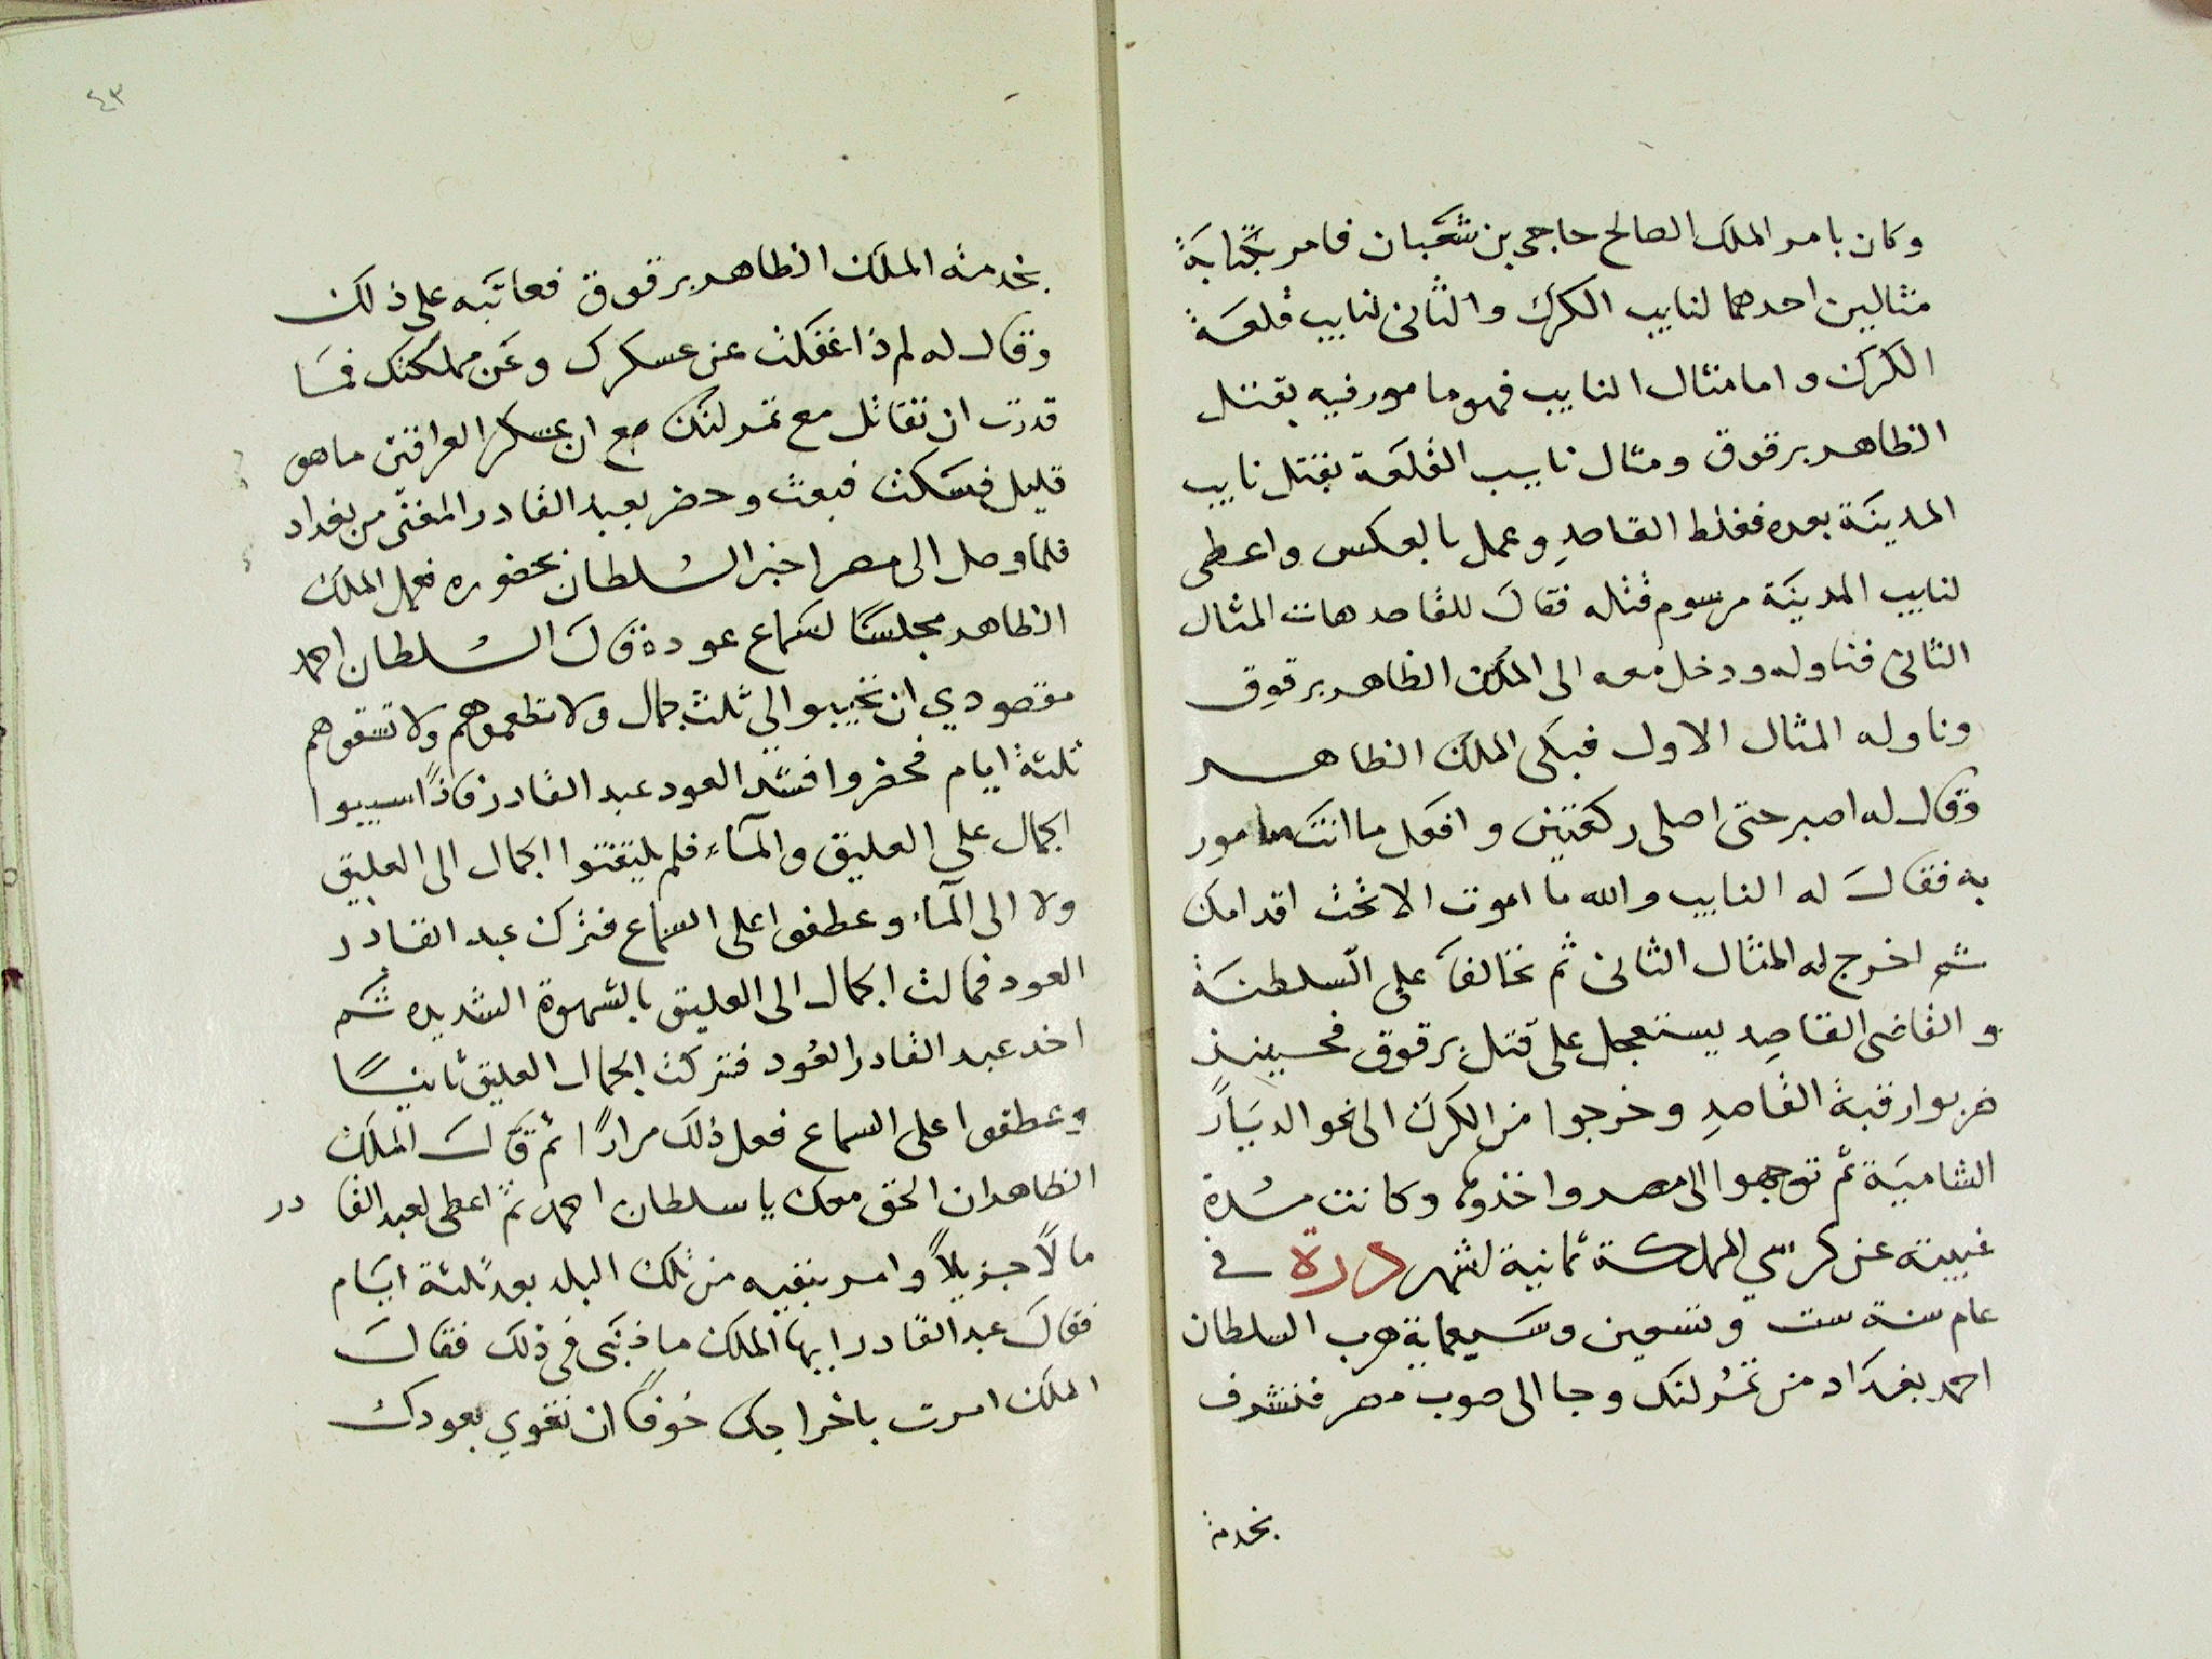 وكان بامر الملك الصالح حاجى بن شعبان فامر بكتابة
مثالين احدهما لنايب الكرك والثانى لنايب قلعة
الكرك واما مثال النايب فهو مامور فيه بقتل
الظاهر برقوق ومثال نايب القلعة بقتل نايب
المدينة بعده فغلط القاصد وعمل بالعكس واعطى
لنايب المدينة مرسوم قتله فقال للقاصد هات المثال
الثانى فناوله ودخل معه الى الملك الظاهر برقوق
وناوله المثال الاول فبكى الملك الظاهر
وقال له اصبر حتى اصلى ركعتين وافعل ما انت مامور
به فقال له النايب والله ما اموت الا تحت اقدامك
ثم اخرج له المثال الثانى ثم تحالفا على السلطنة
والقاضى القاصد يستعجل على قتل برقوق فحينيذ
ضربوا رقبة القاصد وخرجوا من الكرك الى نحو الديار
الشامية ثم توجهوا الى مصر واخذوها وكانت مدة
غيبته عن كرسي المملكة ثمانية اشهر درة في
عام سنة ست وتسعين وسبعماية هرب السلطان
احمد بغداد من تمرلنك وجا الى صوب مصر فتشرف
بخدمة
٤٣
بخدمة الملك الظاهر برقوق فعاتبه على ذلك
وقال له لم ذا غفلت عن عسكرك وعن مملكتك فما
قدرت ان تقاتل مع تمرلنك مع ان عسكر العراقين ما هو
قليل فسكت فبعث وحضر بعبد القادر المغنى من بغداد
فلما وصل الى مصر اخبر السلطان بحضوره فعمل الملك
الظاهر مجلسا لسماع عوده قال السلطان احمد
مقصودي ان تجيبوا لي ثلث جمال ولا تطعموهم ولا تسقوهم
ثلثة ايام فحضروا فشد العود عبد القادر فاذا سيبوا
الجمال على العليق والمآء فلم يلتفتوا الجمال الى العليق
ولا الى المآء وعطفوا على السماع فترك عبد القادر
العود فمالت الجمال الى العليق بالشهوة الشديده ثم
اخد عبد القادر العود فتركت الجمال العليق ثانيا
وعطفوا على السماع فعل ذلك مرارا ثم قال الملك
الظاهر ان الحق معك يا سلطان احمد ثم اعطى لعبد القا در
مالا جزيلا وامر بنفيه من تلك البلد بعد ثلثة ايام
فقال عبد القادر ايها الملك ما ذنبى فى ذلك فقال
الملك امرت باخراجك خوفا ان تغوي بعودك